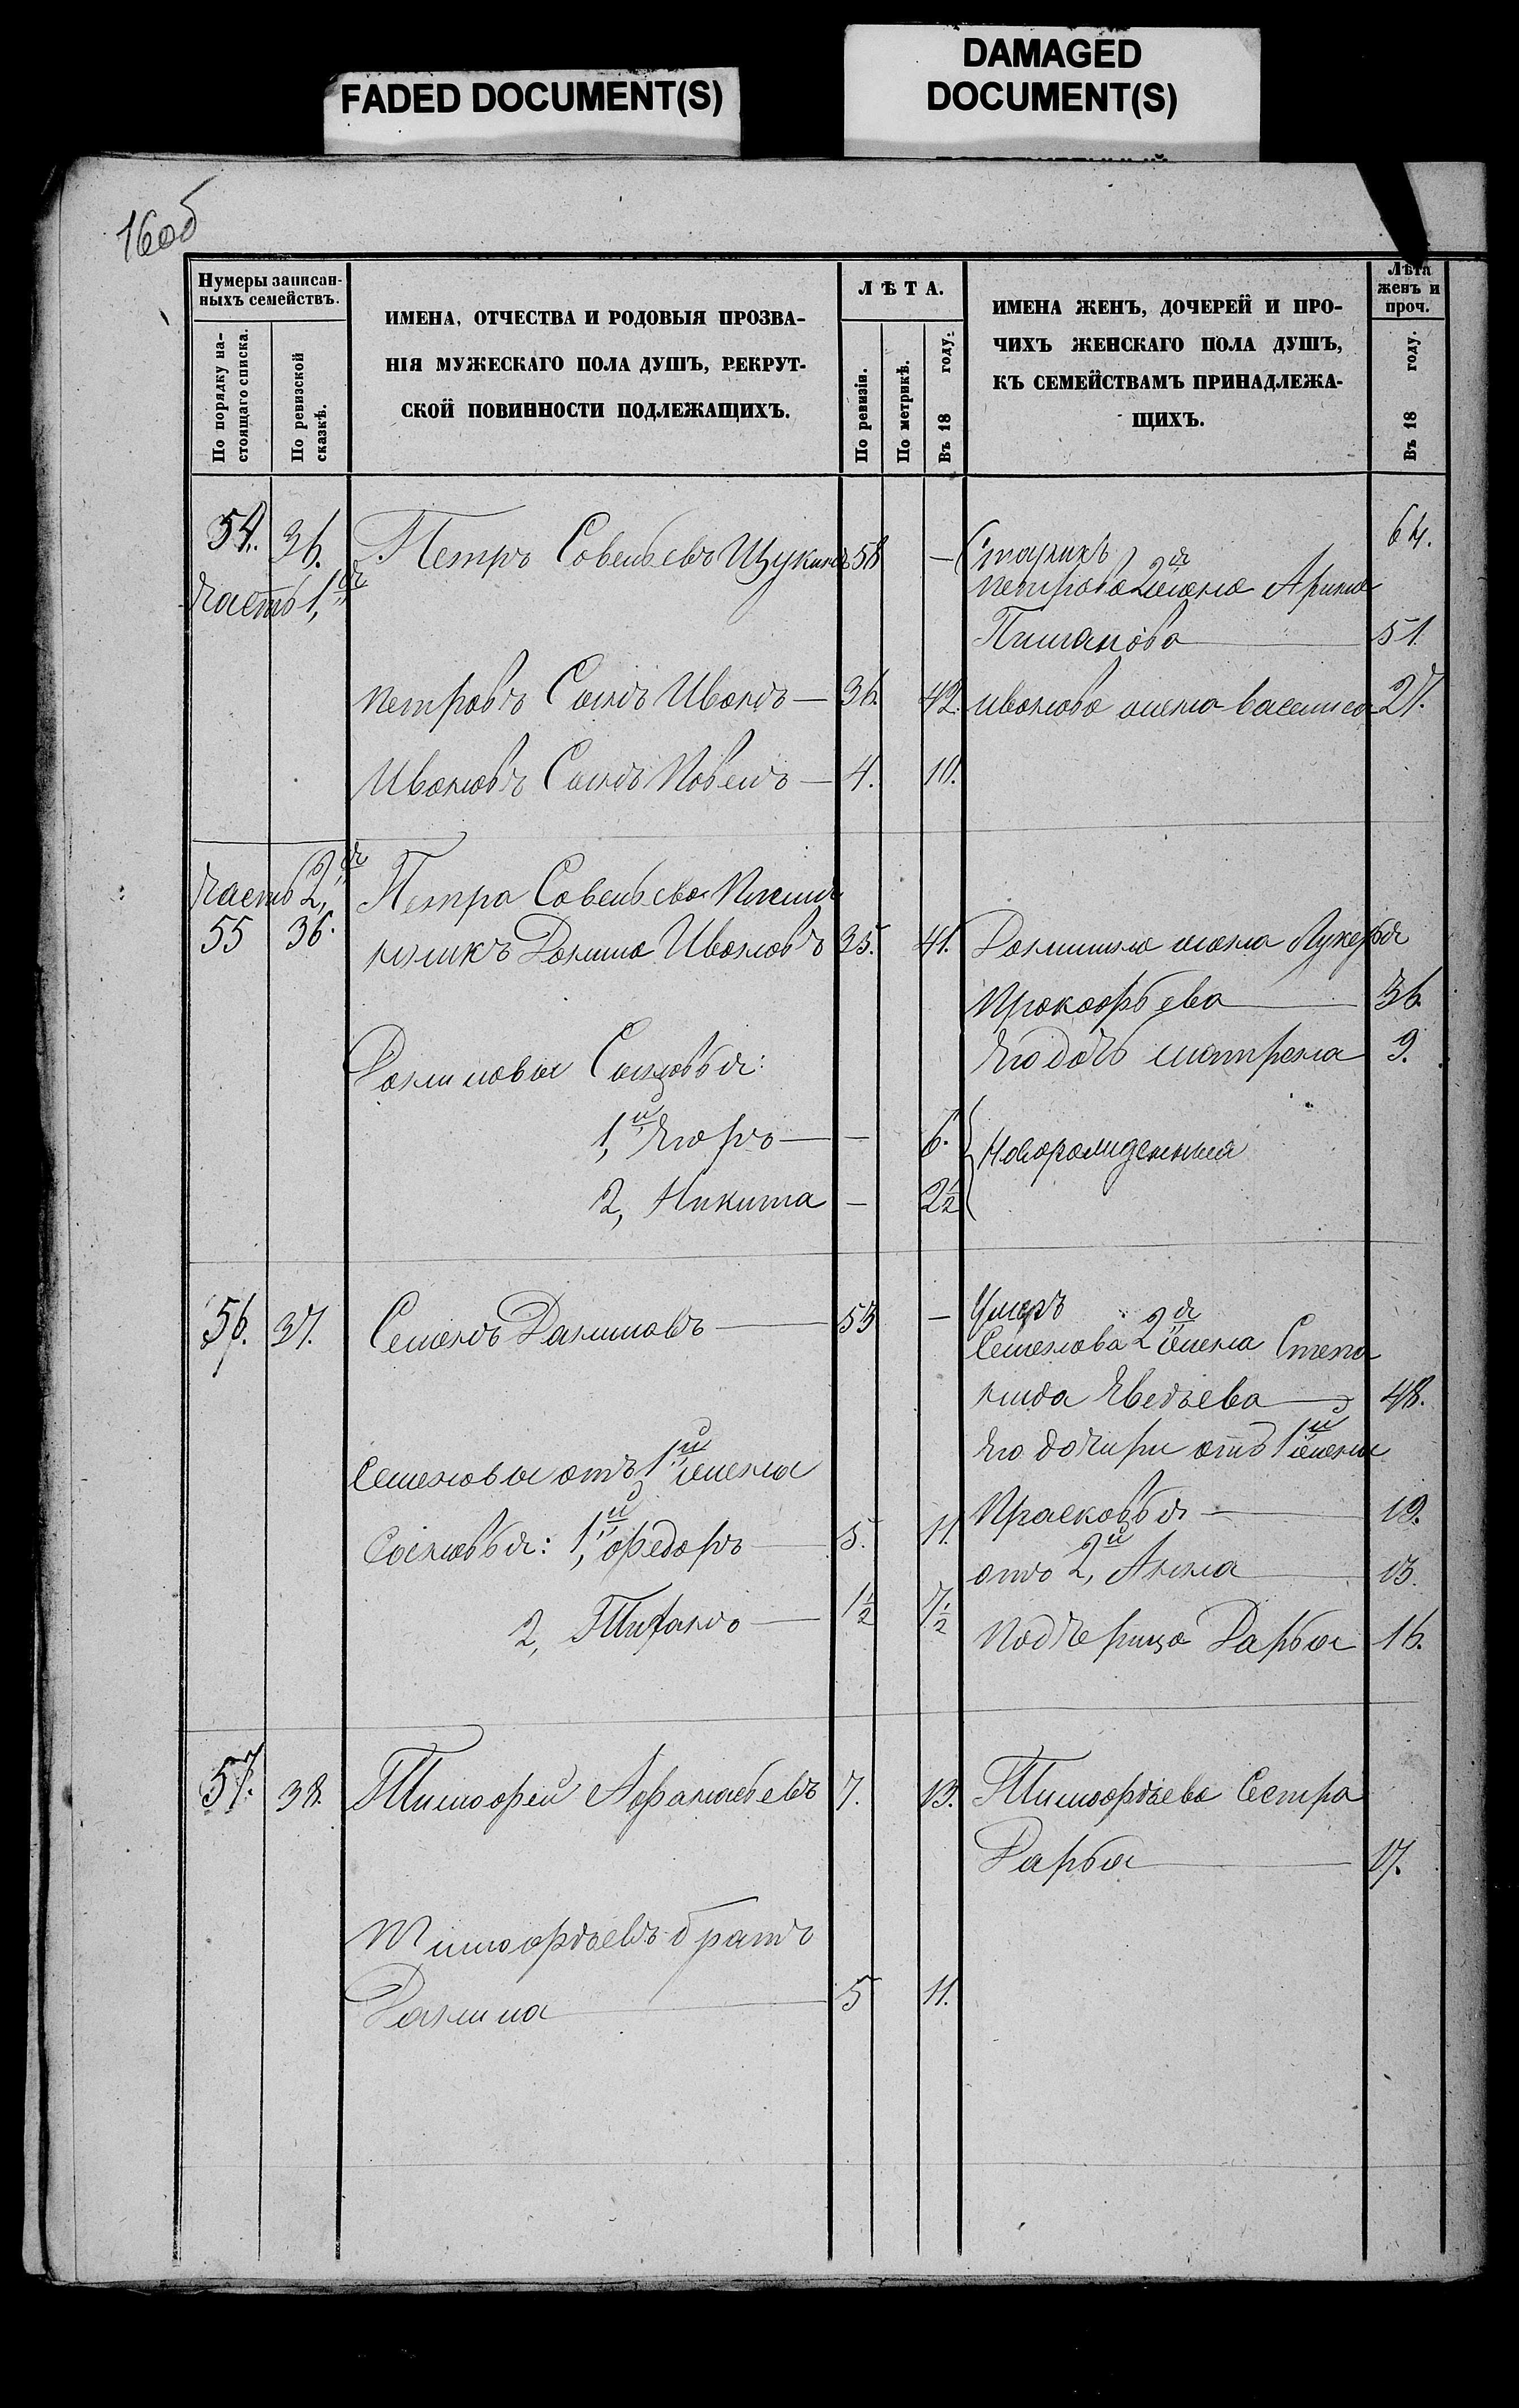 FADED DOCUMENT(S)
DAMAGED
DOCUMENT(S)
16об
Нумеры записан-
ныхъ семействъ.
По порядку на-
стоящаго списка.
По ревизской
сказкѣ.
ИМЕНА, ОТЧЕСТВА И РОДОВЫЯ ПРОЗВА-
НІЯ МУЖЕСКАГО ПОЛА ДУШЪ, РЕКРУТ-
СКОЙ ПОВИННОСТИ ПОДЛЕЖАЩИХЪ.
ЛѢТА.
По ревизіи.
По метрикѣ.
Въ 18 году.
ИМЕНА ЖЕНЪ, ДОЧЕРЕЙ И ПРО-
ЧИХЪ ЖЕНСКАГО ПОЛА ДУШЪ,
КЪ СЕМЕЙСТВАМЪ ПРИНАДЛЕЖА-
ЩИХЪ.
Лѣта
женъ и
проч.
Въ 18 году.
54. 36. Петръ Савельевъ Щукинъ 58 — Старикъ 64.
часть 1,я
Петрова 2я жена Арина
51.
Петровъ Сынъ Иванъ — 36. 42. Иванова жена Василиса 27.
Ивановъ Сынъ Павелъ — 4. 10.
часть 2,я Петра Савельева
55 36. Данила Ивановъ 35. 41. Данилина жена Лукерья
Прокофьева — 36.
Даниловы Сыновья: его дочь Матрена 9.
1,й Егоръ — — 6. Новорожденныя
2, Никита — 2½
56. 37. Семенъ Даниловъ — 53 — Умеръ
Семенова 2я жена Степа
нида Явдѣева — 48.
его дочири отъ 1й жены
Семеновы отъ 1й жены
Прасковья — 19.
Сыновья: 1,й Федоръ — 5. 11.
отъ 2,й Анна — 13.
2, Тифанъ — 1½ 7½
Подчерица Дарья 16.
57. 38. Тимофей Афанасьевъ 7. 13. Тимофѣева Сестра
Дарья — 17.
Тимофѣевъ братъ
Данила — 5 11.